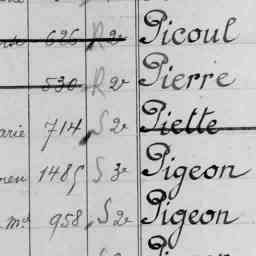 626 R 2e Picoul
530 R 2e Pierre
arie 714 S 2e Piette
1485 S 3e Pigeon
md 958 S 2e Pigeon